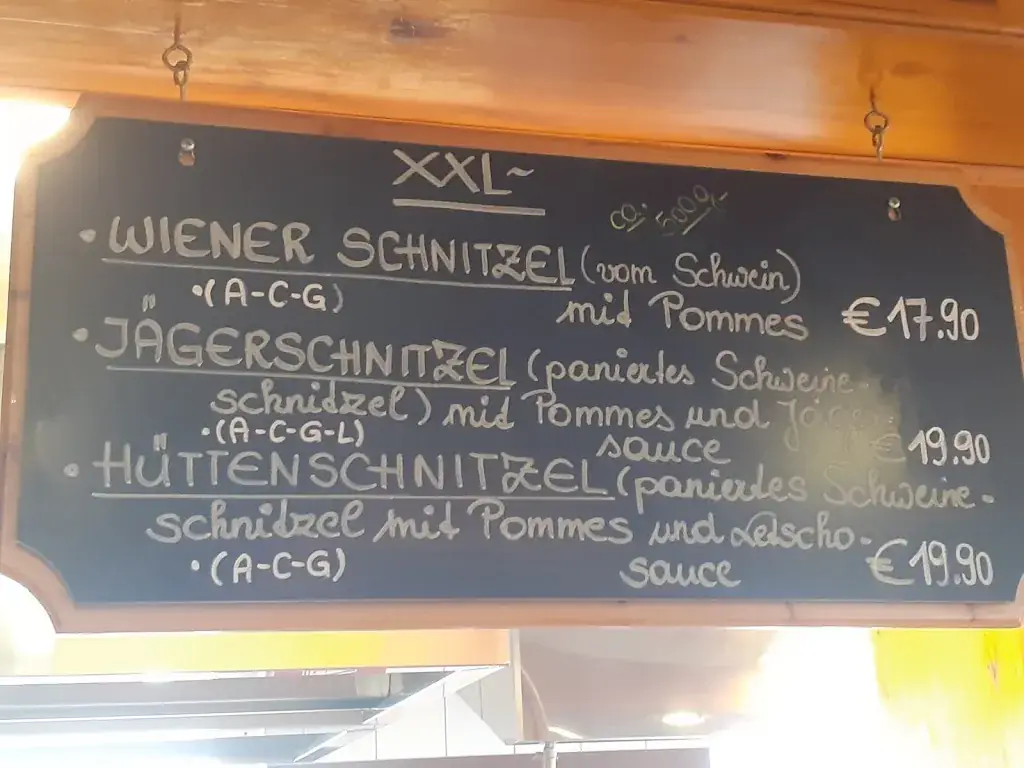 XXL~
ca. 500g
• WIENER SCHNITZEL (vom Schwein)
• (A-C-G) mit Pommes €17.90
• JÄGERSCHNITZEL (paniertes Schweine-
schnitzel) mit Pommes und Jäger-
• (A-C-G-L) sauce €19.90
• HÜTTENSCHNITZEL (paniertes Schweine-
schnitzel mit Pommes und Letscho-
• (A-C-G) sauce €19.90